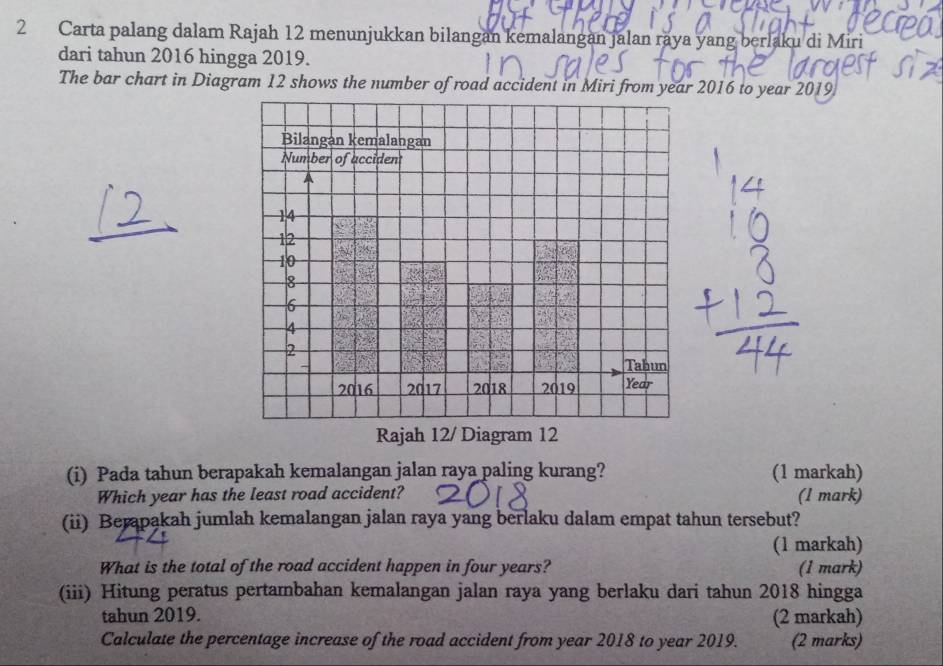 but there is a slight decreas
in sales for the largest size
2 Carta palang dalam Rajah 12 menunjukkan bilangan kemalangan jalan raya yang berlaku di Miri
dari tahun 2016 hingga 2019.
The bar chart in Diagram 12 shows the number of road accident in Miri from year 2016 to year 2019
Bilangan kemalangan
Number of accident
14
12
10
8
6
4
2
Tahun
2016 2017 2018 2019 Year
Rajah 12/ Diagram 12
12
1
14
10
8
+12
44
(i) Pada tahun berapakah kemalangan jalan raya paling kurang? (1 markah)
Which year has the least road accident? 2018 (1 mark)
(ii) Berapakah jumlah kemalangan jalan raya yang berlaku dalam empat tahun tersebut?
44 (1 markah)
What is the total of the road accident happen in four years? (1 mark)
(iii) Hitung peratus pertambahan kemalangan jalan raya yang berlaku dari tahun 2018 hingga
tahun 2019. (2 markah)
Calculate the percentage increase of the road accident from year 2018 to year 2019. (2 marks)